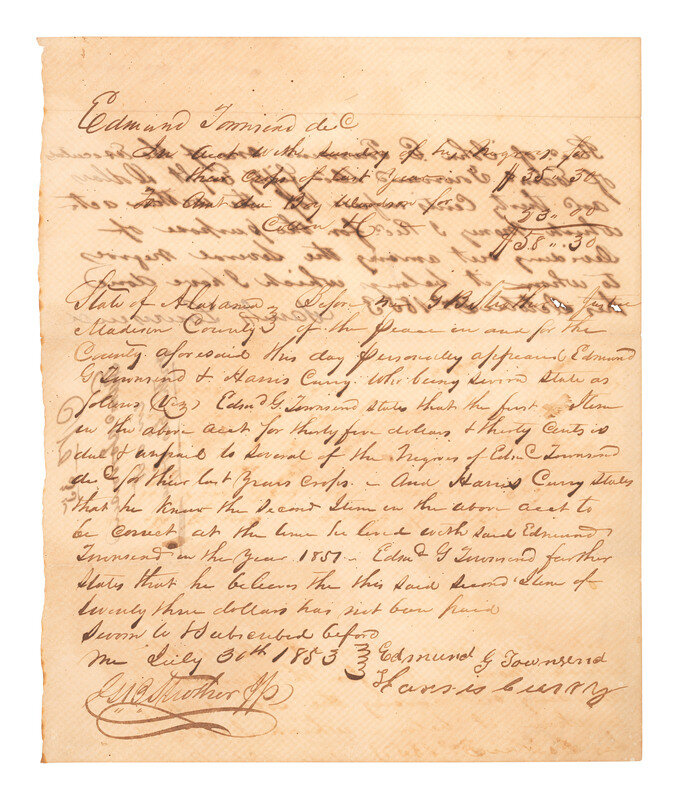 Edmund Townsend decd
In acct with sundry of his Negroes for
their crops of last Year $35..30
To Amt due Boy Woodson for
Cotton &C 23.. 00
$58..30
State of Alabama Before me Strother Justice
Madison County of the peace in and for the
County aforesaid this day personally appeared Edmund
G Townsend & Harris Curry Who being sworn state as
follows (Viz) Edmd G. Townsend states that the first Item
in the above acct for thirty five dollars & thirty Cents is
due & unpaid to several of the Negroes of Edmd Townsend
decd for their last Years crops. And Harris Curry states
that he knew the second Item in the above acct to
be correct at the time he lived with said Edmund
Townsend in the Year 1851. Edmd G Townsend further
States that he believes the this said second Item of
twenty three dollars has not been paid
Sworn to & subscribed before
me July 30th 1853 Edmund G Townsend
Harris Curry
Strother JP